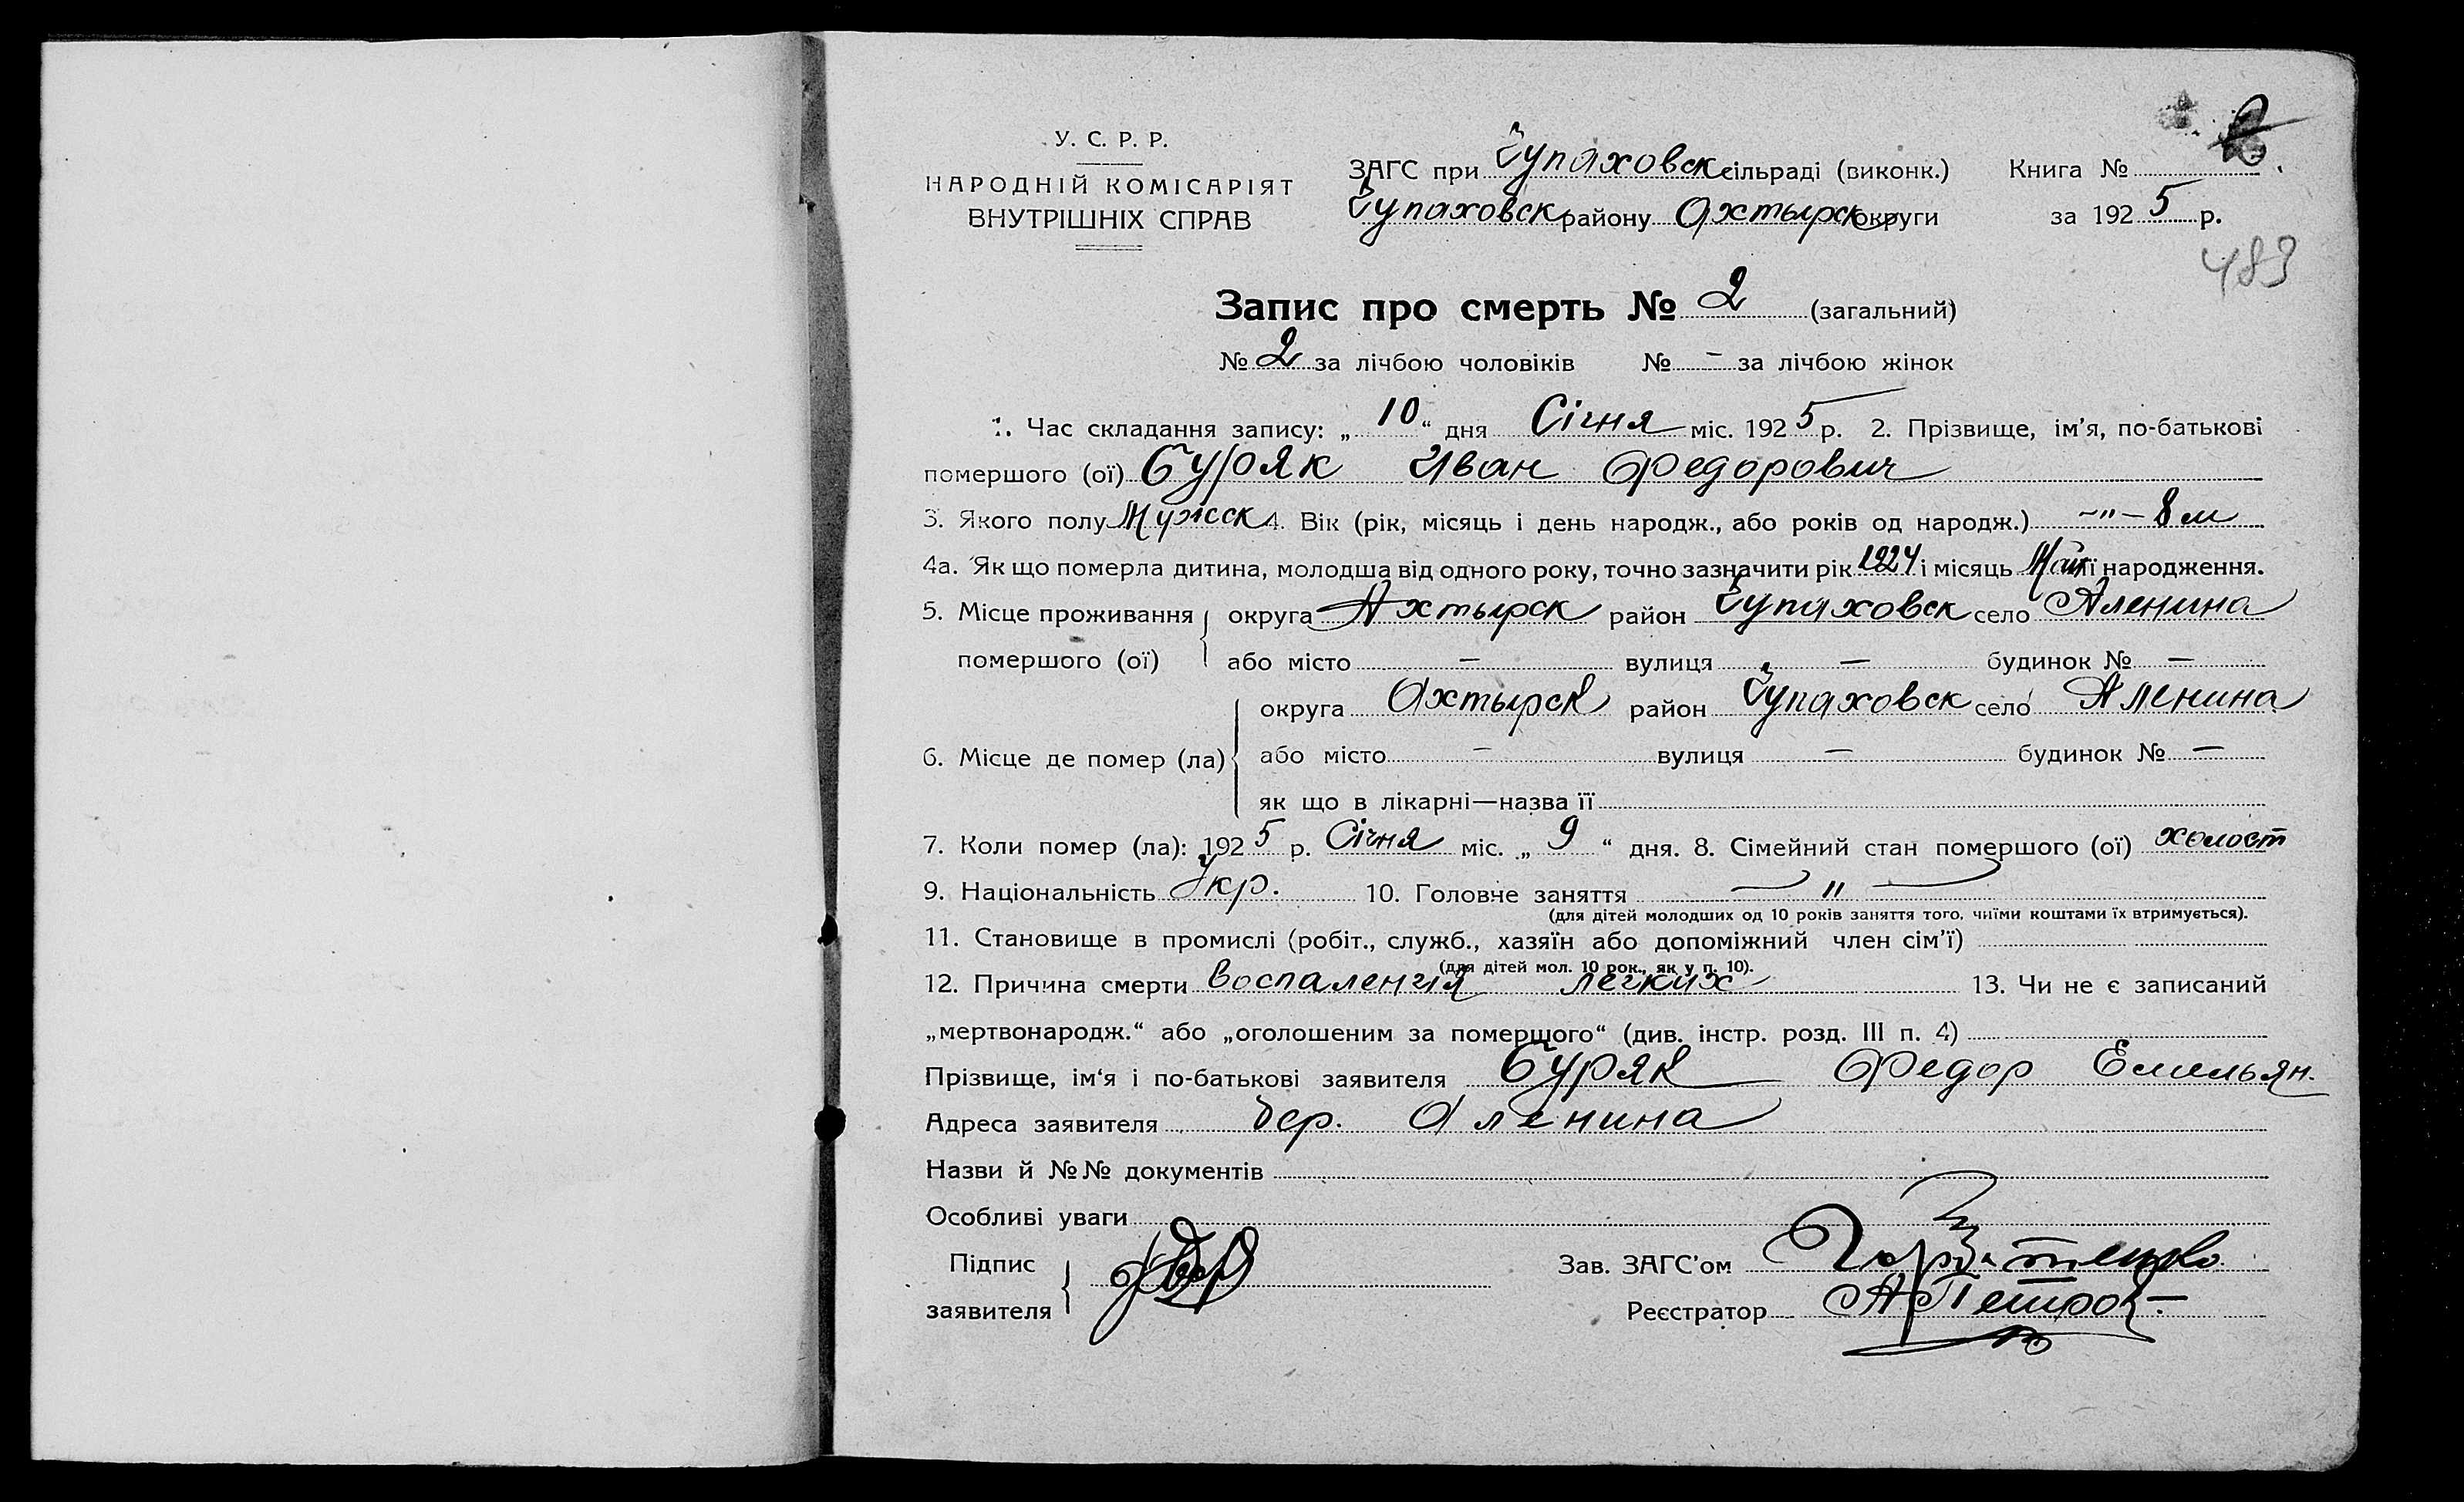 У. С. Р. Р.
НАРОДНІЙ КОМІСАРІЯТ
ВНУТРІШНІХ СПРАВ
ЗАГС при Чупаховск сільраді (виконк.) Книга №
Чупаховск району Ахтырск округи за 1925 р.
483
Запис про смерть № 2 (загальний)
№ 2 за лічбою чоловіків № – за лічбою жінок
1. Час складання запису: „10“ дня Січня міс. 1925 р. 2. Прізвище, ім'я, по-батькові
помершого (ої) Буряк Иван Федорович
3. Якого полу Мужск 4. Вік (рік, місяць і день народж., або років од народж.) –"– 8 м
4а. Як що померла дитина, молодша від одного року, точно зазначити рік 1924 і місяць Май її народження.
5. Місце проживання округа Ахтырск район Чупаховск село Аленина
помершого (ої) або місто – вулиця – будинок № –
округа Ахтырск район Чупаховск село Аленина
6. Місце де помер (ла) або місто – вулиця – будинок № –
як що в лікарні—назва її
7. Коли помер (ла): 1925 р. Січня міс. „9“ дня. 8. Сімейний стан помершого (ої) холост
9. Національність Укр. 10. Головне заняття — " —
(для дітей молодших од 10 років заняття того, чиїми коштами їх втримується).
11. Становище в промислі (робіт., служб., хазяїн або допоміжний член сім'ї)
(для дітей мол. 10 рок., як у п. 10).
12. Причина смерти воспаленія легких 13. Чи не є записаний
„мертвонародж.“ або „оголошеним за помершого“ (див. інстр. розд. III п. 4)
Прізвище, ім'я і по-батькові заявителя Буряк Федор Емельян.
Адреса заявителя дер. Аленина
Назви й №№ документів
Особливі уваги
Підпис
заявителя
Зав. ЗАГС'ом
Реєстратор